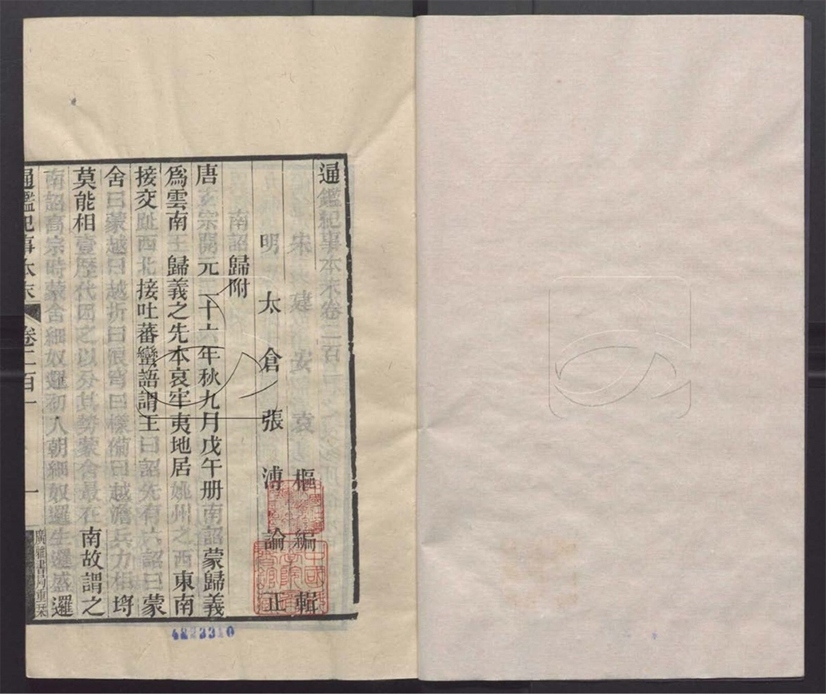 通鑑紀事本末卷二百一
宋建安袁樞編輯
明太倉張溥論正
南詔歸附
唐玄宗開元二十六年秋九月戊午册南詔蒙歸義
爲雲南王歸義之先本哀牢夷地居姚州之西東南
接交趾西北接吐蕃蠻語謂王曰詔先有六詔曰蒙
舍曰蒙越曰越折曰浪穹曰樣備曰越澹兵力相埒
莫能相壹歷代因之以分其勢蒙舍最在南故謂之
南詔高宗時蒙舍細奴邏初入朝細奴邏生邏盛邏
通鑑紀事本末 卷二百一 一 廣雅書局重栞